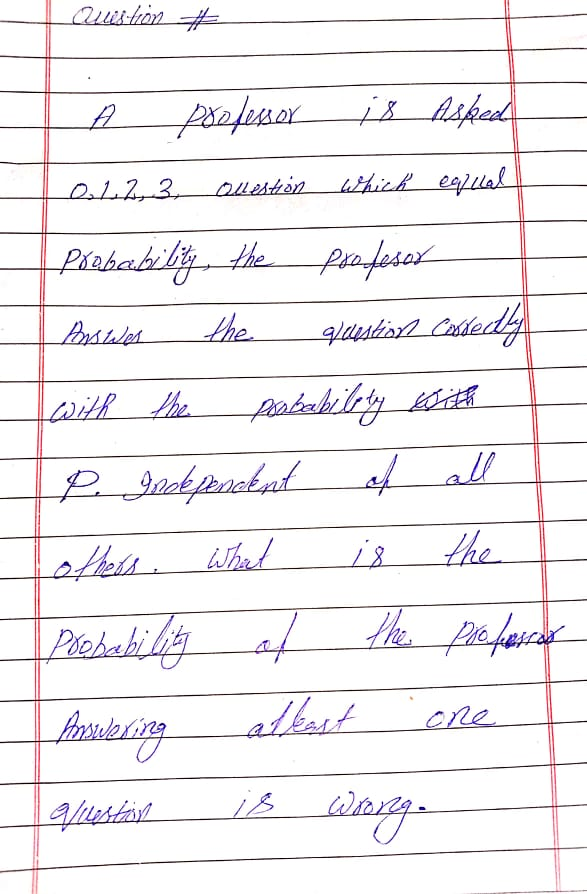 Question #
A professor is Asked
0,1,2,3, Question which equal
Probability, the profesor
Answer the question correctly
with the probability with
P. Independent of all
others. What is the
Probability of the professor
Answering atleast one
question is wrong.